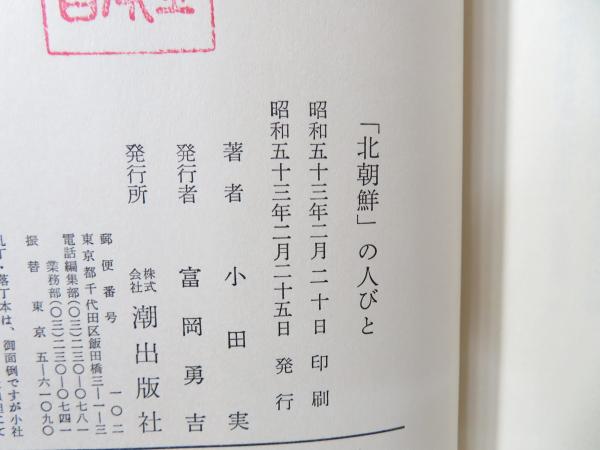 「北朝鮮」の人びと
昭和五十三年二月二十日 印刷
昭和五十三年二月二十五日 発行
著者 小田実
発行者 富岡勇吉
発行所 株式会社 潮出版社
郵便番号 一〇二
東京都千代田区飯田橋三—一—三
電話編集部(〇三)二三〇—〇七八一
業務部(〇三)二三〇—〇七四一
振替 東京 五—六一〇九〇
・落丁本は、御面倒ですが小社